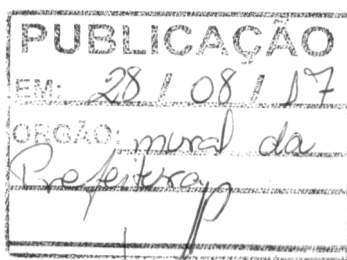 PUBLICAÇÃO
EM: 28 / 08 / 17
ORGÃO: mural da
Prefeitura